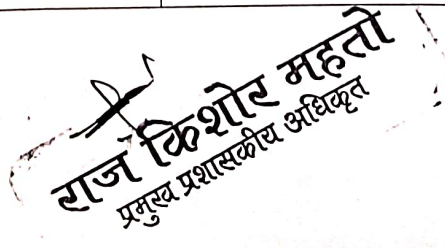 राज किशोर महतो
प्रमुख प्रशासकीय अधिकृत